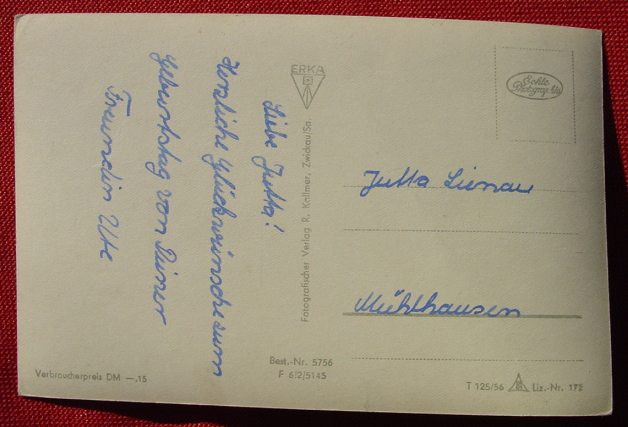 Liebe Jutta!
Herzliche Glückwünsche zum
Geburtstag von Deiner
Freundin Ute
ERKA
Fotografischer Verlag R. Kallmer, Zwickau/Sa.
Echte
Photographie
Jutta Lienau
Mühlhausen
Verbraucherpreis DM —.15
Best.-Nr. 5756
F 6/2/5145
T 125/56 Liz.-Nr. 175